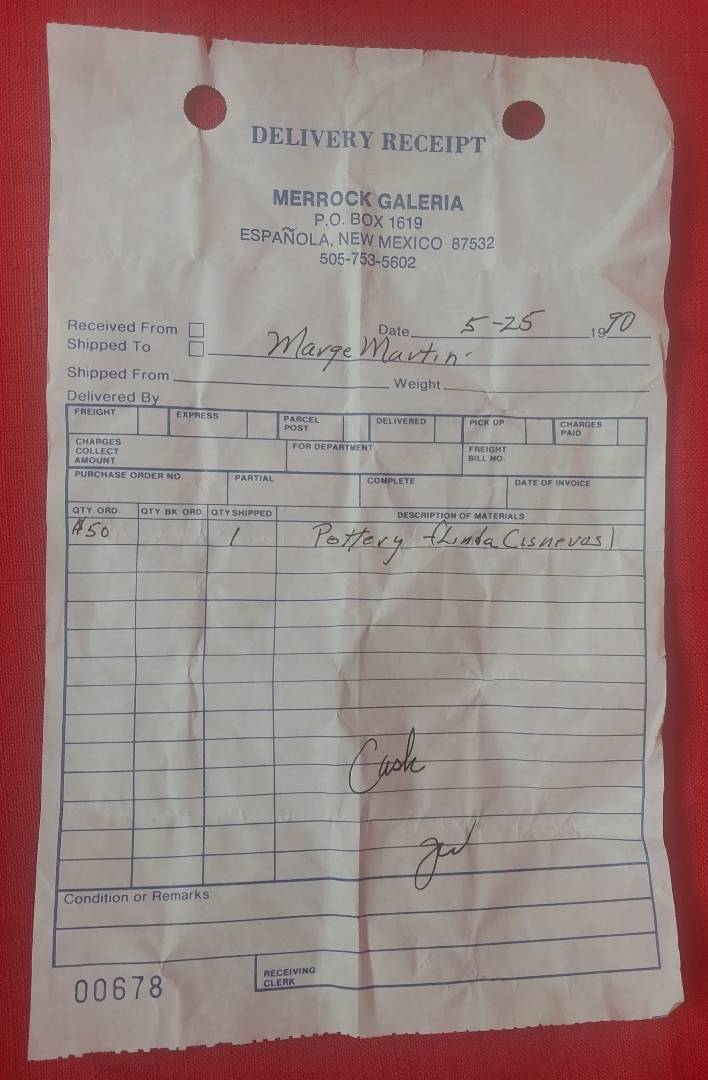 DELIVERY RECEIPT
MERROCK GALERIA
P.O. BOX 1619
ESPAÑOLA, NEW MEXICO 87532
505-753-5602
Received From
Date 5-25 1990
Shipped To Marge Martin
Shipped From Weight
Delivered By
FREIGHT EXPRESS PARCEL POST DELIVERED PICK UP CHARGES PAID
CHARGES COLLECT AMOUNT FOR DEPARTMENT FREIGHT BILL NO
PURCHASE ORDER NO. PARTIAL COMPLETE DATE OF INVOICE
QTY. ORD QTY. BK. ORD. QTY SHIPPED DESCRIPTION OF MATERIALS
$50 1 Pottery (Linda Cisnevas)
Cash
Condition or Remarks:
RECEIVING CLERK
00678